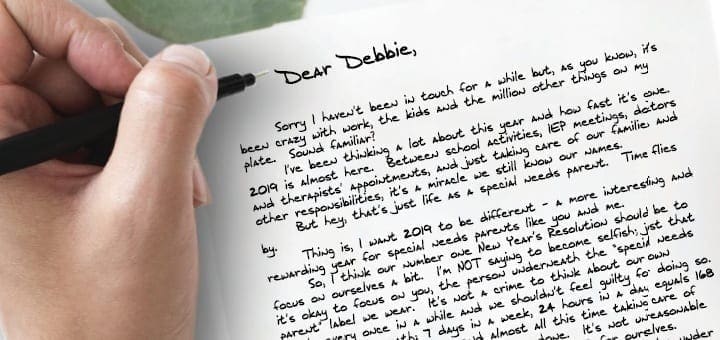 Dear Debbie,
Sorry I haven't been in touch for a while but, as you know, it's
been crazy with work, the kids and the million other things on my
plate. Sound familiar?
I've been thinking a lot about this year and how fast it's gone.
2019 is almost here. Between school activities, IEP meetings, doctors
and therapists' appointments, and just taking care of our families and
other responsibilities, it's a miracle we still know our names.
But hey, that's just life as a special needs parent. Time flies
by.
Thing is, I want 2019 to be different - a more interesting and
rewarding year for special needs parents like you and me.
So, I think our number one New Year's Resolution should be to
focus on ourselves a bit. I'm NOT saying to become selfish; just that
it's okay to focus on you, the person underneath the "special needs
parent" label we wear. It's not a crime to think about our own
every once in a while and we shouldn't feel guilty for doing so.
7 days in a week, 24 hours in a day equals 168
almost all this time taking care of
It's not unreasonable
for ourselves.
under